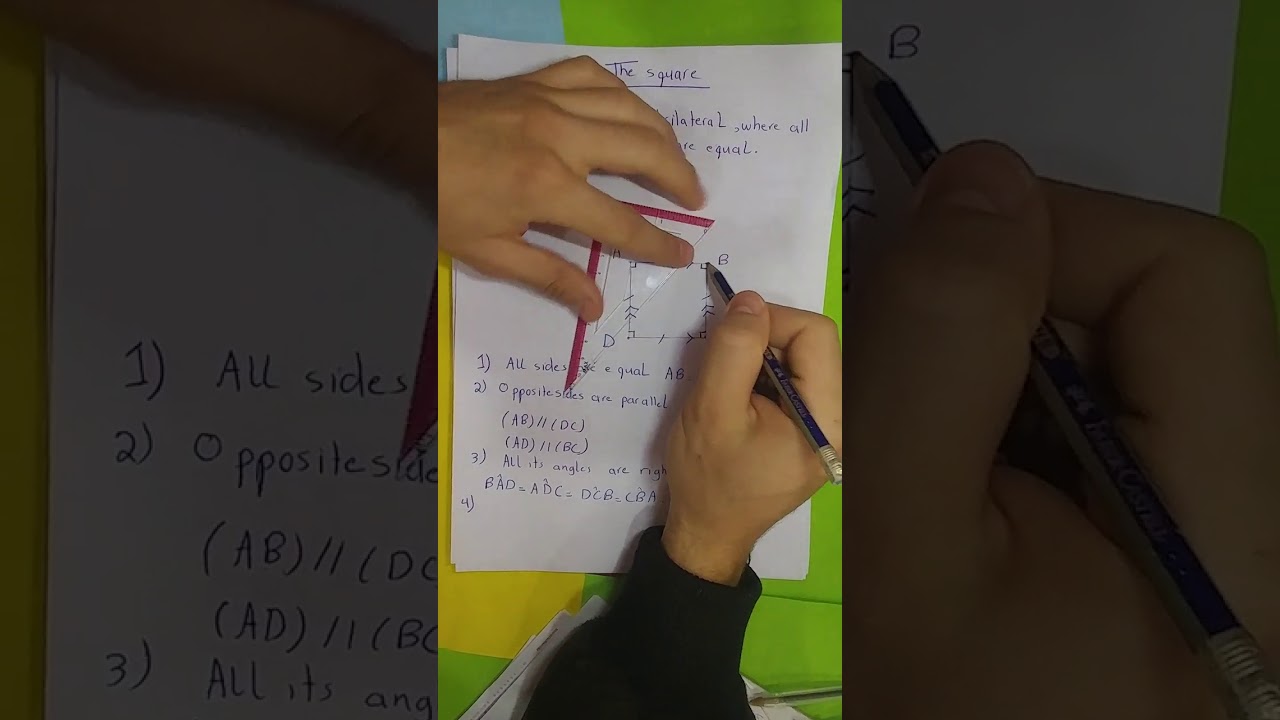 The square
ilateral, where all
are equal.
B
D
1) All sides are equal AB
2) Opposite sides are parallel
(AB)//(DC)
(AD)//(BC)
3) All its angles are righ
BÂD = AD̂C = DĈB = CB̂A
4)
B
1) All sides
2) Opposite side
(AB)//(DC
(AD)//(BC
3) All its ang